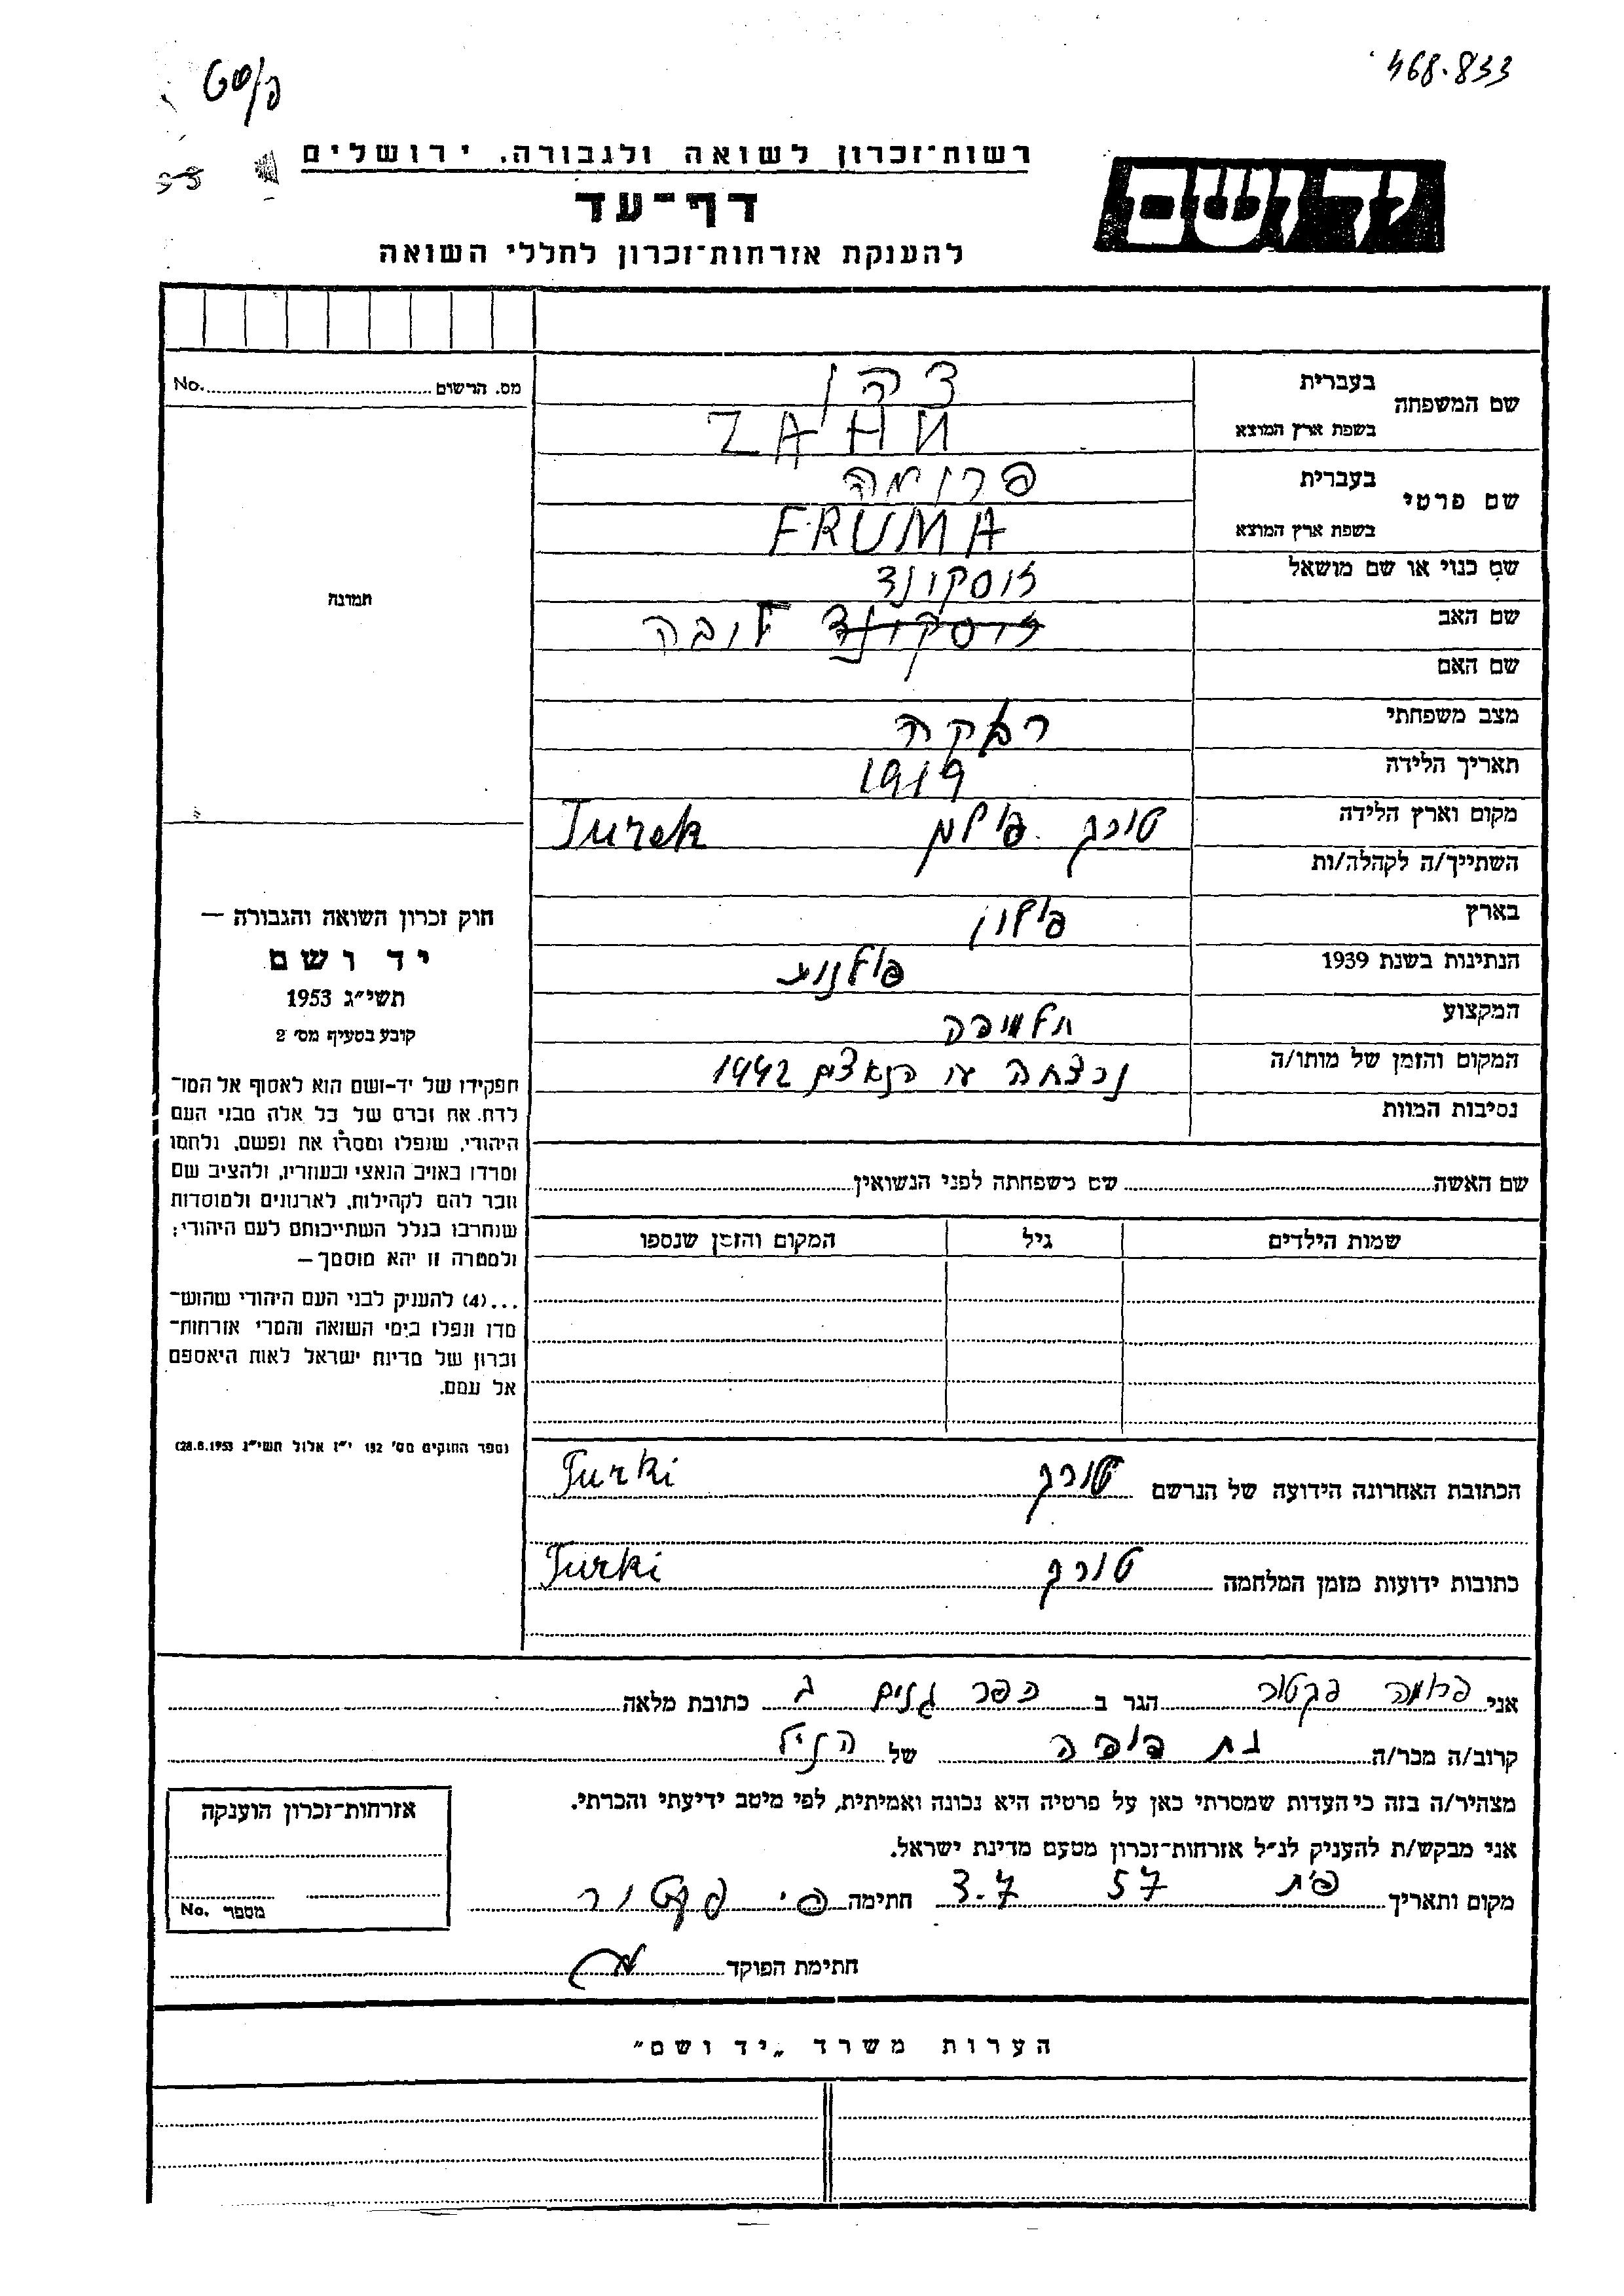 468.833
רשות־זכרון לשואה ולגבורה, ירושלים
דף־עד
להענקת אזרחות־זכרון לחללי השואה
יד ושם
מס. הרשום No.
שם המשפחה
בעברית צהן
בשפת ארץ המוצא ZAHN
שם פרטי
בעברית פרומה
בשפת ארץ המוצא FRUMA
שם כנוי או שם מושאל זוסקונד
שם האב זוסקונד לובה
שם האם
מצב משפחתי רוקה
תאריך הלידה 1919
מקום וארץ הלידה טורק פולין Turek
השתייך/ה לקהלה/ות
בארץ פולין
הנתינות בשנת 1939 פולנית
המקצוע תלמידה
המקום והזמן של מותו/ה נרצחה ע"י הנאצים 1942
נסיבות המוות
תמונה
חוק זכרון השואה והגבורה —
יד ושם
תשי״ג 1953
קובע בסעיף מס׳ 2
תפקידו של יד-ושם הוא לאסוף אל המו־
לדת את זכרם של כל אלה מבני העם
היהודי, שנפלו ומסרו את נפשם, נלחמו
ומרדו באויב הנאצי ובעוזריו, ולהציב שם
וזכר להם לקהילות, לארגונים ולמוסדות
שנחרבו בגלל השתייכותם לעם היהודי;
ולמטרה זו יהא מוסמך—
...(4) להעניק לבני העם היהודי שהוש־
מדו ונפלו בימי השואה והמרי אזרחות־
זכרון של מדינת ישראל לאות היאספם
אל עמם.
(ספר החוקים מס׳ 132 י״ז אלול תשי״ג 28.8.1953)
שם האשה שם משפחתה לפני הנשואין
שמות הילדים גיל המקום והזמן שנספו
הכתובת האחרונה הידועה של הנרשם טורק Turki
כתובות ידועות מזמן המלחמה טורק Turki
אני פרומה פקטור הגר ב כפר גנים ג כתובת מלאה
קרוב/ה מכר/ה בת דודה של הנ״ל
מצהיר/ה בזה כי העדות שמסרתי כאן על פרטיה היא נכונה ואמיתית, לפי מיטב ידיעתי והכרתי.
אני מבקש/ת להעניק לנ״ל אזרחות־זכרון מטעם מדינת ישראל.
מקום ותאריך פ״ת 3.7 57 חתימה פ׳ פקטור
אזרחות־זכרון הוענקה
מספר No.
חתימת הפוקד
הערות משרד „יד ושם״